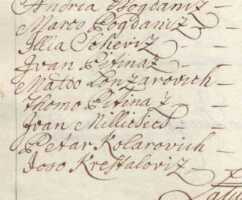 Andria Bogdaniz
Marco Bogdaniz
Illia Coheviz
Jvan Pitinaz
Matto Lenzarovich
Thomo Pitinaz
Jvan Millicsics
Petar Kolarovich
Joso Krestaloviz